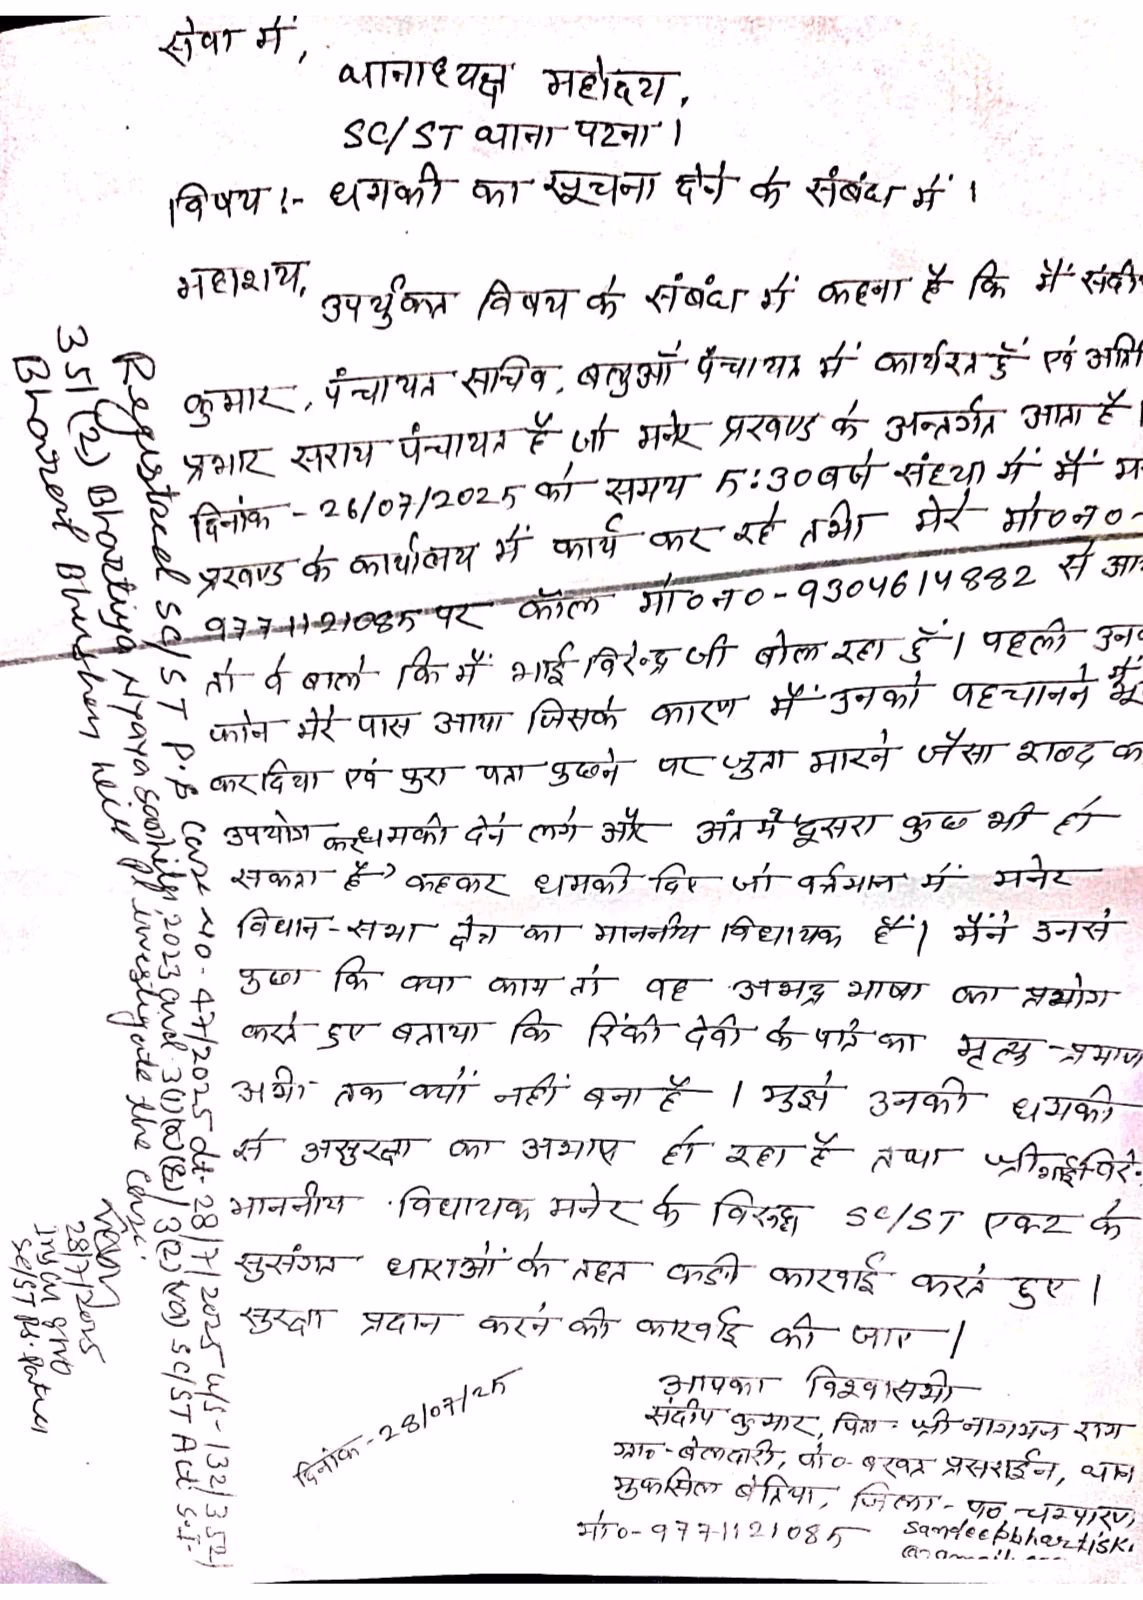 सेवा में,
थानाध्यक्ष महोदय,
SC/ST थाना पटना।
विषय:- धमकी का सूचना देने के संबंध में।
महाशय,
उपर्युक्त विषय के संबंध में कहना है कि मैं संदी
कुमार, पंचायत सचिव, बलुआँ पंचायत में कार्यरत हूँ एवं अति
प्रभार सराय पंचायत है जो मनेर प्रखण्ड के अन्तर्गत आता है।
दिनांक - 26/07/2025 को समय 5:30 बजे संध्या में मैं म
प्रखण्ड के कार्यालय में कार्य कर रहे तभी मेरे मो०न०-
9771121085 पर कॉल मो०न०-9304614882 से आ
तो वे बोले कि मैं भाई विरेन्द्र जी बोल रहा हूँ। पहली उन
फोन मेरे पास आया जिसके कारण मैं उनको पहचानने में
कर दिया एवं पुरा पता पुछने पर जुता मारने जैसा शब्द क
उपयोग कर धमकी देने लगे और अंत में "दूसरा कुछ भी हो
सकता है" कहकर धमकी दिए जो वर्तमान में मनेर
विधान-सभा क्षेत्र का माननीय विधायक हैं। मैंने उनसे
पुछा कि क्या काम तो वह अभद्र भाषा का प्रयोग
करते हुए बताया कि रिंकी देवी के पति का मृत्यु-प्रमाण
अभी तक क्यों नहीं बना है। मुझे उनकी धमकी
से असुरक्षा का अभाष हो रहा है तथा श्री भाई विरे
माननीय विधायक मनेर के विरुद्ध SC/ST एक्ट के
सुसंगत धाराओं के तहत कड़ी कारवाई करते हुए।
सुरक्षा प्रदान करने की कारवाई की जाए।
आपका विश्वासभी
संदीप कुमार, पिता- श्री
ग्राम- बेलदारी, पो०-
मुफसिल बेतिया, जिला- प० चम्पारण,
मो०-9771121085
sandeepbhartisk
दिनांक-28/07/25
Registered SC/ST P.S Case No-47/2025 dt-28/7/2025 u/s-132/352/
351(2) Bhartiya Nyaya Sanhita, 2023 and 3(1)(r)(s)/3(2)(va) SC/ST Act. S.I.
Bharat Bhushan will pl. investigate the case.
28/7/2025
SC/ST P.S. Patna